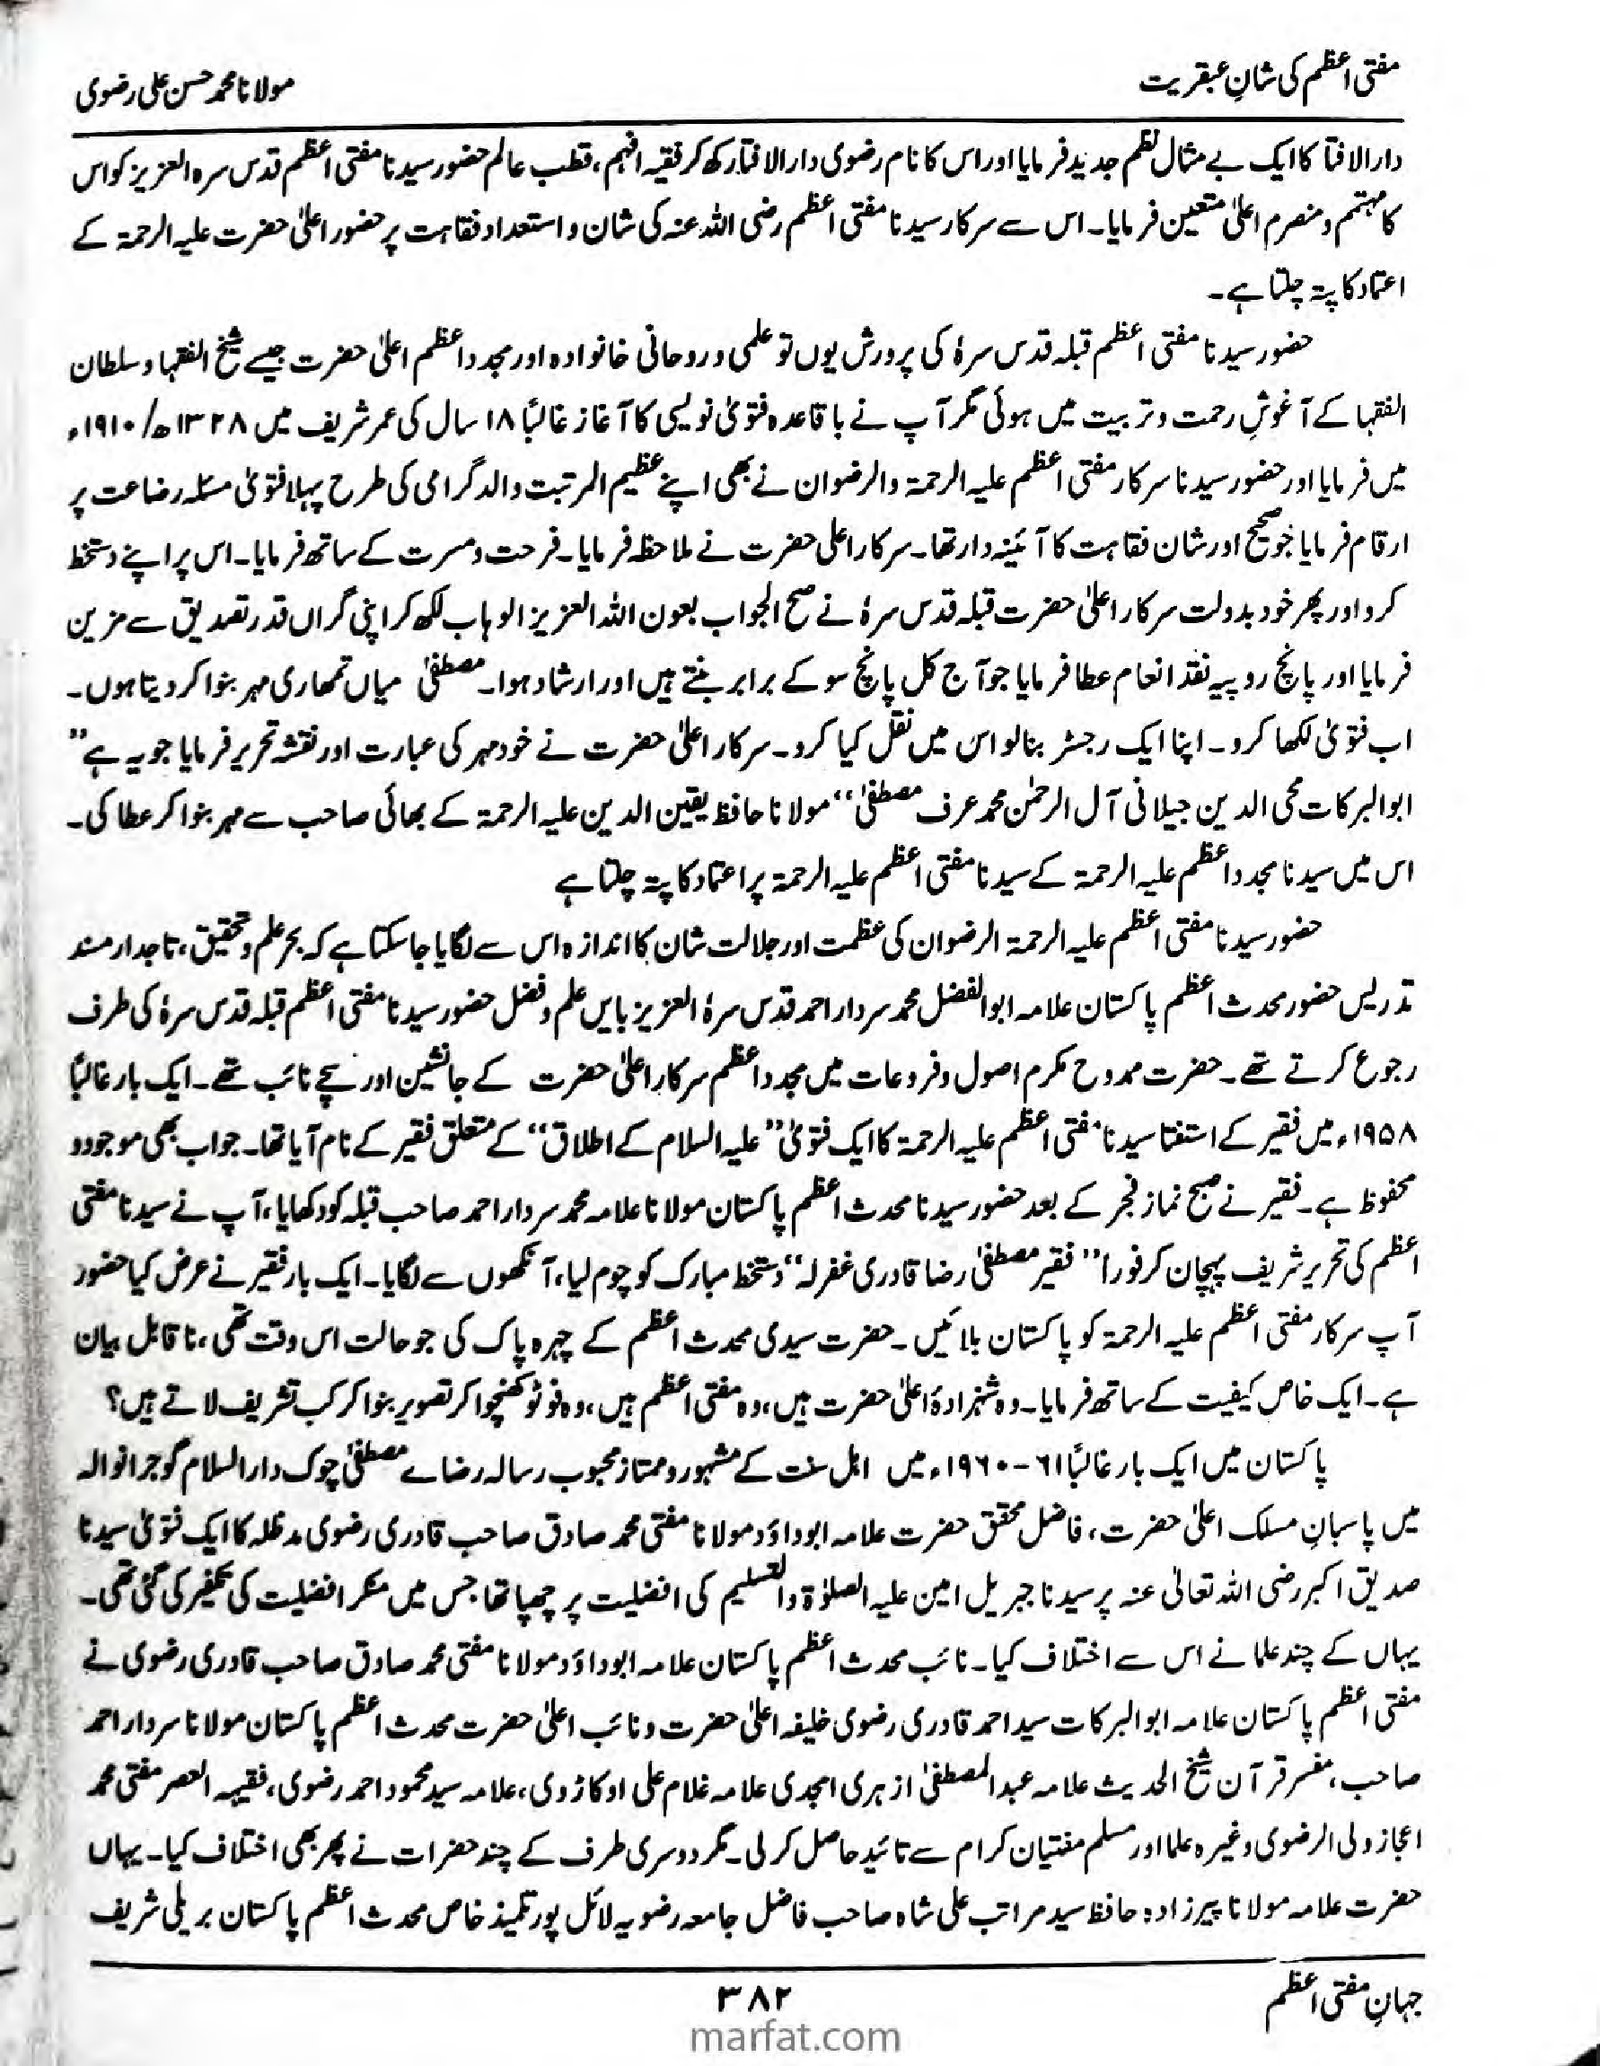 مفتی اعظم کی شانِ عبقریت
مولانا محمد حسن علی رضوی
دارالافتا کا ایک بے مثال نظم جدید فرمایا اور اس کا نام رضوی دارالافتا رکھ کر فقیہ افہم، قطب عالم حضور سیدنا مفتی اعظم قدس سرہ العزیز کو اس
کا مہتمم و منصرم اعلیٰ متعین فرمایا۔ اس سے سرکار سیدنا مفتی اعظم رضی اللہ عنہ کی شان و استعداد فقاہت پر حضور اعلیٰ حضرت علیہ الرحمۃ کے
اعتماد کا پتہ چلتا ہے۔
حضور سیدنا مفتی اعظم قبلہ قدس سرہٗ کی پرورش یوں تو علمی و روحانی خانوادہ اور مجدد اعظم اعلیٰ حضرت جیسے شیخ الفقہا و سلطان
الفقہا کے آغوشِ رحمت و تربیت میں ہوئی مگر آپ نے باقاعدہ فتویٰ نویسی کا آغاز غالبًا ۱۸ سال کی عمر شریف میں ۱۳۲۸ھ/۱۹۱۰ء
میں فرمایا اور حضور سیدنا سرکار مفتی اعظم علیہ الرحمۃ والرضوان نے بھی اپنے عظیم المرتبت والد گرامی کی طرح پہلا فتویٰ مسئلہ رضاعت پر
ارقام فرمایا جو صحیح اور شان فقاہت کا آئینہ دار تھا۔ سرکار اعلیٰ حضرت نے ملاحظہ فرمایا۔ فرحت و مسرت کے ساتھ فرمایا۔ اس پر اپنے دستخط
کرو اور پھر خود بدولت سرکار اعلیٰ حضرت قبلہ قدس سرہٗ نے صح الجواب بعون اللہ العزیز الوہاب لکھ کر اپنی گراں قدر تصدیق سے مزین
فرمایا اور پانچ روپیہ نقد انعام عطا فرمایا جو آج کل پانچ سو کے برابر بنتے ہیں اور ارشاد ہوا۔ مصطفیٰ میاں تمھاری مہر بنوا کر دیتا ہوں۔
اب فتویٰ لکھا کرو۔ اپنا ایک رجسٹر بنالو اس میں نقل کیا کرو۔ سرکار اعلیٰ حضرت نے خود مہر کی عبارت اور نقشہ تحریر فرمایا جو یہ ہے”
ابوالبرکات محی الدین جیلانی آل الرحمٰن محمد عرف مصطفیٰ“ مولانا حافظ یقین الدین علیہ الرحمۃ کے بھائی صاحب سے مہر بنوا کر عطا کی۔
اس میں سیدنا مجدد اعظم علیہ الرحمۃ کے سیدنا مفتی اعظم علیہ الرحمۃ پر اعتماد کا پتہ چلتا ہے
حضور سیدنا مفتی اعظم علیہ الرحمۃ الرضوان کی عظمت اور جلالت شان کا اندازہ اس سے لگایا جاسکتا ہے کہ بحر علم و تحقیق، تاجدار مسند
تدریس حضور محدث اعظم پاکستان علامہ ابوالفضل محمد سردار احمد قدس سرہٗ العزیز بایں علم و فضل حضور سیدنا مفتی اعظم قبلہ قدس سرہٗ کی طرف
رجوع کرتے تھے۔ حضرت ممدوح مکرم اصول و فروعات میں مجدد اعظم سرکار اعلیٰ حضرت کے جانشین اور سچے نائب تھے۔ ایک بار غالبًا
۱۹۵۸ء میں فقیر کے استفتا سیدنا مفتی اعظم علیہ الرحمۃ کا ایک فتویٰ ”علیہ السلام کے اطلاق“ کے متعلق فقیر کے نام آیا تھا۔ جواب بھی موجود و
محفوظ ہے۔ فقیر نے صبح نماز فجر کے بعد حضور سیدنا محدث اعظم پاکستان مولانا علامہ محمد سردار احمد صاحب قبلہ کو دکھایا، آپ نے سیدنا مفتی
اعظم کی تحریر شریف پہچان کر فورا” فقیر مصطفیٰ رضا قادری غفرلہ“ دستخط مبارک کو چوم لیا، آنکھوں سے لگایا۔ ایک بار فقیر نے عرض کیا حضور
آپ سرکار مفتی اعظم علیہ الرحمۃ کو پاکستان بلائیں۔ حضرت سیدی محدث اعظم کے چہرہ پاک کی جو حالت اس وقت تھی، ناقابل بیان
ہے۔ ایک خاص کیفیت کے ساتھ فرمایا۔ وہ شہزادۂ اعلیٰ حضرت ہیں، وہ مفتی اعظم ہیں، وہ فوٹو کھنچوا کر تصویر بنوا کر کب تشریف لاتے ہیں؟
پاکستان میں ایک بار غالبًا ۶۱-۱۹۶۰ء میں اہل سنت کے مشہور و ممتاز محبوب رسالہ رضاے مصطفیٰ چوک دارالسلام گوجرانوالہ
میں پاسبانِ مسلک اعلیٰ حضرت، فاضل محقق حضرت علامہ ابوداؤد مولانا مفتی محمد صادق صاحب قادری رضوی مدظلہ کا ایک فتویٰ سیدنا
صدیق اکبر رضی اللہ تعالیٰ عنہ پر سیدنا جبریل امین علیہ الصلوٰۃ والتسلیم کی افضلیت پر چھپا تھا جس میں منکر افضلیت کی تکفیر کی گئی تھی۔
یہاں کے چند علما نے اس سے اختلاف کیا۔ نائب محدث اعظم پاکستان علامہ ابوداؤد مولانا مفتی محمد صادق صاحب قادری رضوی نے
مفتی اعظم پاکستان علامہ ابوالبرکات سید احمد قادری رضوی خلیفہ اعلیٰ حضرت و نائب اعلیٰ حضرت محدث اعظم پاکستان مولانا سردار احمد
صاحب، مفسر قرآن شیخ الحدیث علامہ عبدالمصطفیٰ ازہری امجدی علامہ غلام علی اوکاڑوی، علامہ سید محمود احمد رضوی، فقیہہ العصر مفتی محمد
اعجاز ولی الرضوی وغیرہ علما اور مسلم مفتیان کرام سے تائید حاصل کرلی۔ مگر دوسری طرف کے چند حضرات نے پھر بھی اختلاف کیا۔ یہاں
حضرت علامہ مولانا پیرزادہ حافظ سید مراتب علی شاہ صاحب فاضل جامعہ رضویہ لائل پور تلمیذ خاص محدث اعظم پاکستان بریلی شریف
جہانِ مفتی اعظم
۳۸۲
marfat.com